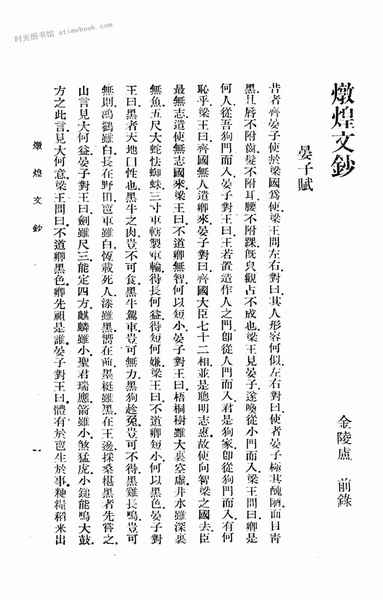 时光图书馆 atimebook.com
燉煌文鈔
晏子賦 金陵盧 前錄
昔者齊晏子使於梁國爲使梁王問左右對曰其人形容何似左右對曰使者晏子極其醜陋面目靑
黑且唇不附齒髮不附耳腰不附踝旣皃觀占不成也梁王見晏子遂喚從小門而入梁王問曰卿是
何人從吾狗門而入晏子對王曰王若置造作人之門卽從人門而入君是狗家卽從狗門而入有何
恥乎梁王曰齊國無人遣卿來晏子對曰齊國大臣七十二相並是聰明志惠故使向智梁之國去臣
最無志遣使無志國來梁王曰不道卿無智何以短小晏子對王曰梧桐樹雖大裏空虛井水雖深裏
無魚五尺大蛇怯蜘蛛三寸車轄製車輪得長何益得短何嫌梁王曰不道卿短小何以黑色晏子對
王曰黑者天地口性也黑牛之肉豈可不食黑牛駕車豈可無力黑狗趁兔豈可不得黑雞長鳴豈可
無則鴻鶴雖白長在野田車雖白恆載死人漆雖黑嚮在前墨梃雖黑在王邊採桑椹黑者先嘗之
山言見大何益晏子對王曰劍雖尺三能定四方麒麟雖小聖君瑞應箭雖小煞猛虎小鎚能鳴大鼓
方之此言見大何意梁王問曰不道卿黑色卿先祖是誰晏子對王曰體有於生於事粳糧稻米出
燉煌文鈔 一